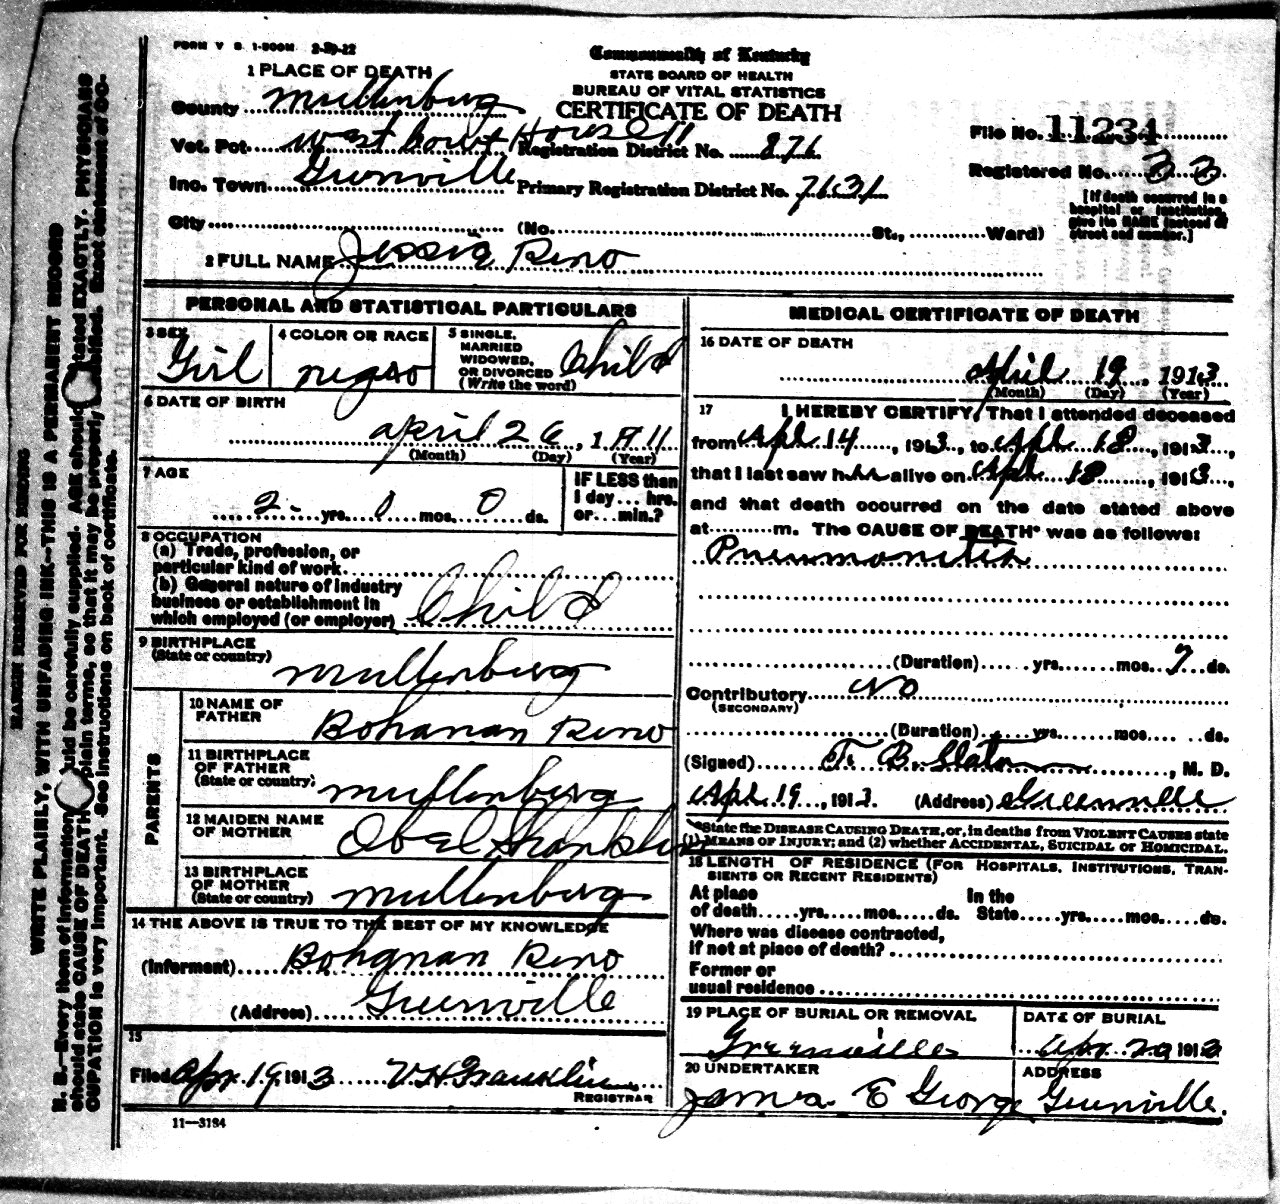 FORM V S. 1-500M 2-29-22
Commonwealth of Kentucky
STATE BOARD OF HEALTH
BUREAU OF VITAL STATISTICS
CERTIFICATE OF DEATH
1 PLACE OF DEATH
County Mullenburg
Vot. Pct. West Court House
Registration District No. 876
Inc. Town Greenville Primary Registration District No. 7631
City (No. St., Ward)
File No. 11234
Registered No. 33
[If death occurred in a
hospital or institution,
give its NAME instead of
street and number.]
2 FULL NAME Jessie Reno
PERSONAL AND STATISTICAL PARTICULARS
3 SEX Girl
4 COLOR OR RACE negro
5 SINGLE,
MARRIED
WIDOWED,
OR DIVORCED
(Write the word) Child
6 DATE OF BIRTH
april 26, 1911
(Month) (Day) (Year)
7 AGE
2 yrs. 0 mos. 0 ds.
IF LESS than
1 day... hrs.
or... min.?
8 OCCUPATION
(a) Trade, profession, or
particular kind of work
(b) General nature of industry
business or establishment in
which employed (or employer) Child
9 BIRTHPLACE
(State or country) Mullenburg
PARENTS
10 NAME OF
FATHER Bohanan Reno
11 BIRTHPLACE
OF FATHER
(State or country) Mullenburg
12 MAIDEN NAME
OF MOTHER
13 BIRTHPLACE
OF MOTHER
(State or country) Mullenburg
14 THE ABOVE IS TRUE TO THE BEST OF MY KNOWLEDGE
(Informant) Bohanan Reno
(Address) Greenville
15
Filed Apr. 19, 1913 V.H. Franklin
REGISTRAR
11—3184
MEDICAL CERTIFICATE OF DEATH
16 DATE OF DEATH
April 19, 1913
(Month) (Day) (Year)
17 I HEREBY CERTIFY, That I attended deceased
from Apl 14, 1913, to Apl 18, 1913,
that I last saw her alive on Apl 18, 1913,
and that death occurred on the date stated above
at m. The CAUSE OF DEATH* was as follows:
Pneumonitis
(Duration) yrs. mos. 7 ds.
Contributory No
(SECONDARY)
(Duration) yrs. mos. ds.
(Signed) T. B. Slaton, M. D.
Apl 19, 1913. (Address) Greenville
*State the DISEASE CAUSING DEATH, or, in deaths from VIOLENT CAUSES state
(1) MEANS OF INJURY; and (2) whether ACCIDENTAL, SUICIDAL OR HOMICIDAL.
18 LENGTH OF RESIDENCE (FOR HOSPITALS, INSTITUTIONS, TRAN-
SIENTS OR RECENT RESIDENTS)
At place In the
of death yrs. mos. ds. State yrs. mos. ds.
Where was disease contracted,
if not at place of death?
Former or
usual residence
19 PLACE OF BURIAL OR REMOVAL
Greenville
DATE OF BURIAL
Apr. 20 1913
20 UNDERTAKER
James E George
ADDRESS
Greenville.
MARGIN RESERVED FOR BINDING
WRITE PLAINLY, WITH UNFADING INK—THIS IS A PERMANENT RECORD
N. B.—Every item of information should be carefully supplied. AGE should be stated EXACTLY. PHYSICIANS
should state CAUSE OF DEATH in plain terms, so that it may be properly classified. Exact statement of OC-
CUPATION is very important. See instructions on back of certificate.